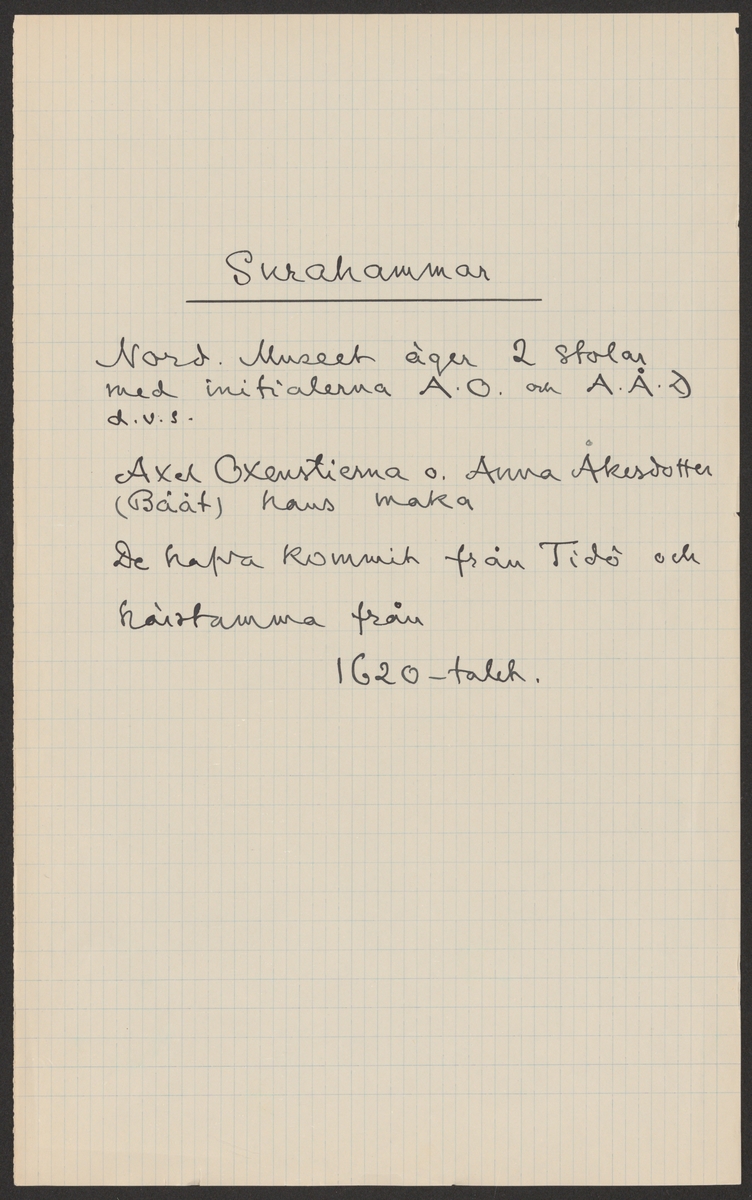 Surahammar
Nord. Museet äger 2 stolar
med initialerna A.O. och A.Å.D
d.v.s.
Axel Oxenstierna o. Anna Åkesdotter
(Bååt) hans maka
De hafva kommit från Tidö och
härstamma från
1620-talet.